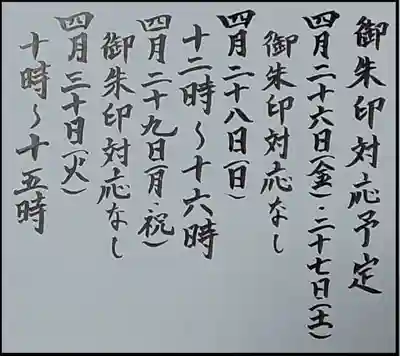 御朱印対応予定
四月二十六日(金)・二十七日(土)
御朱印対応なし
四月二十八日(日)
十二時〜十六時
四月二十九日(月・祝)
御朱印対応なし
四月三十日(火)
十時〜十五時